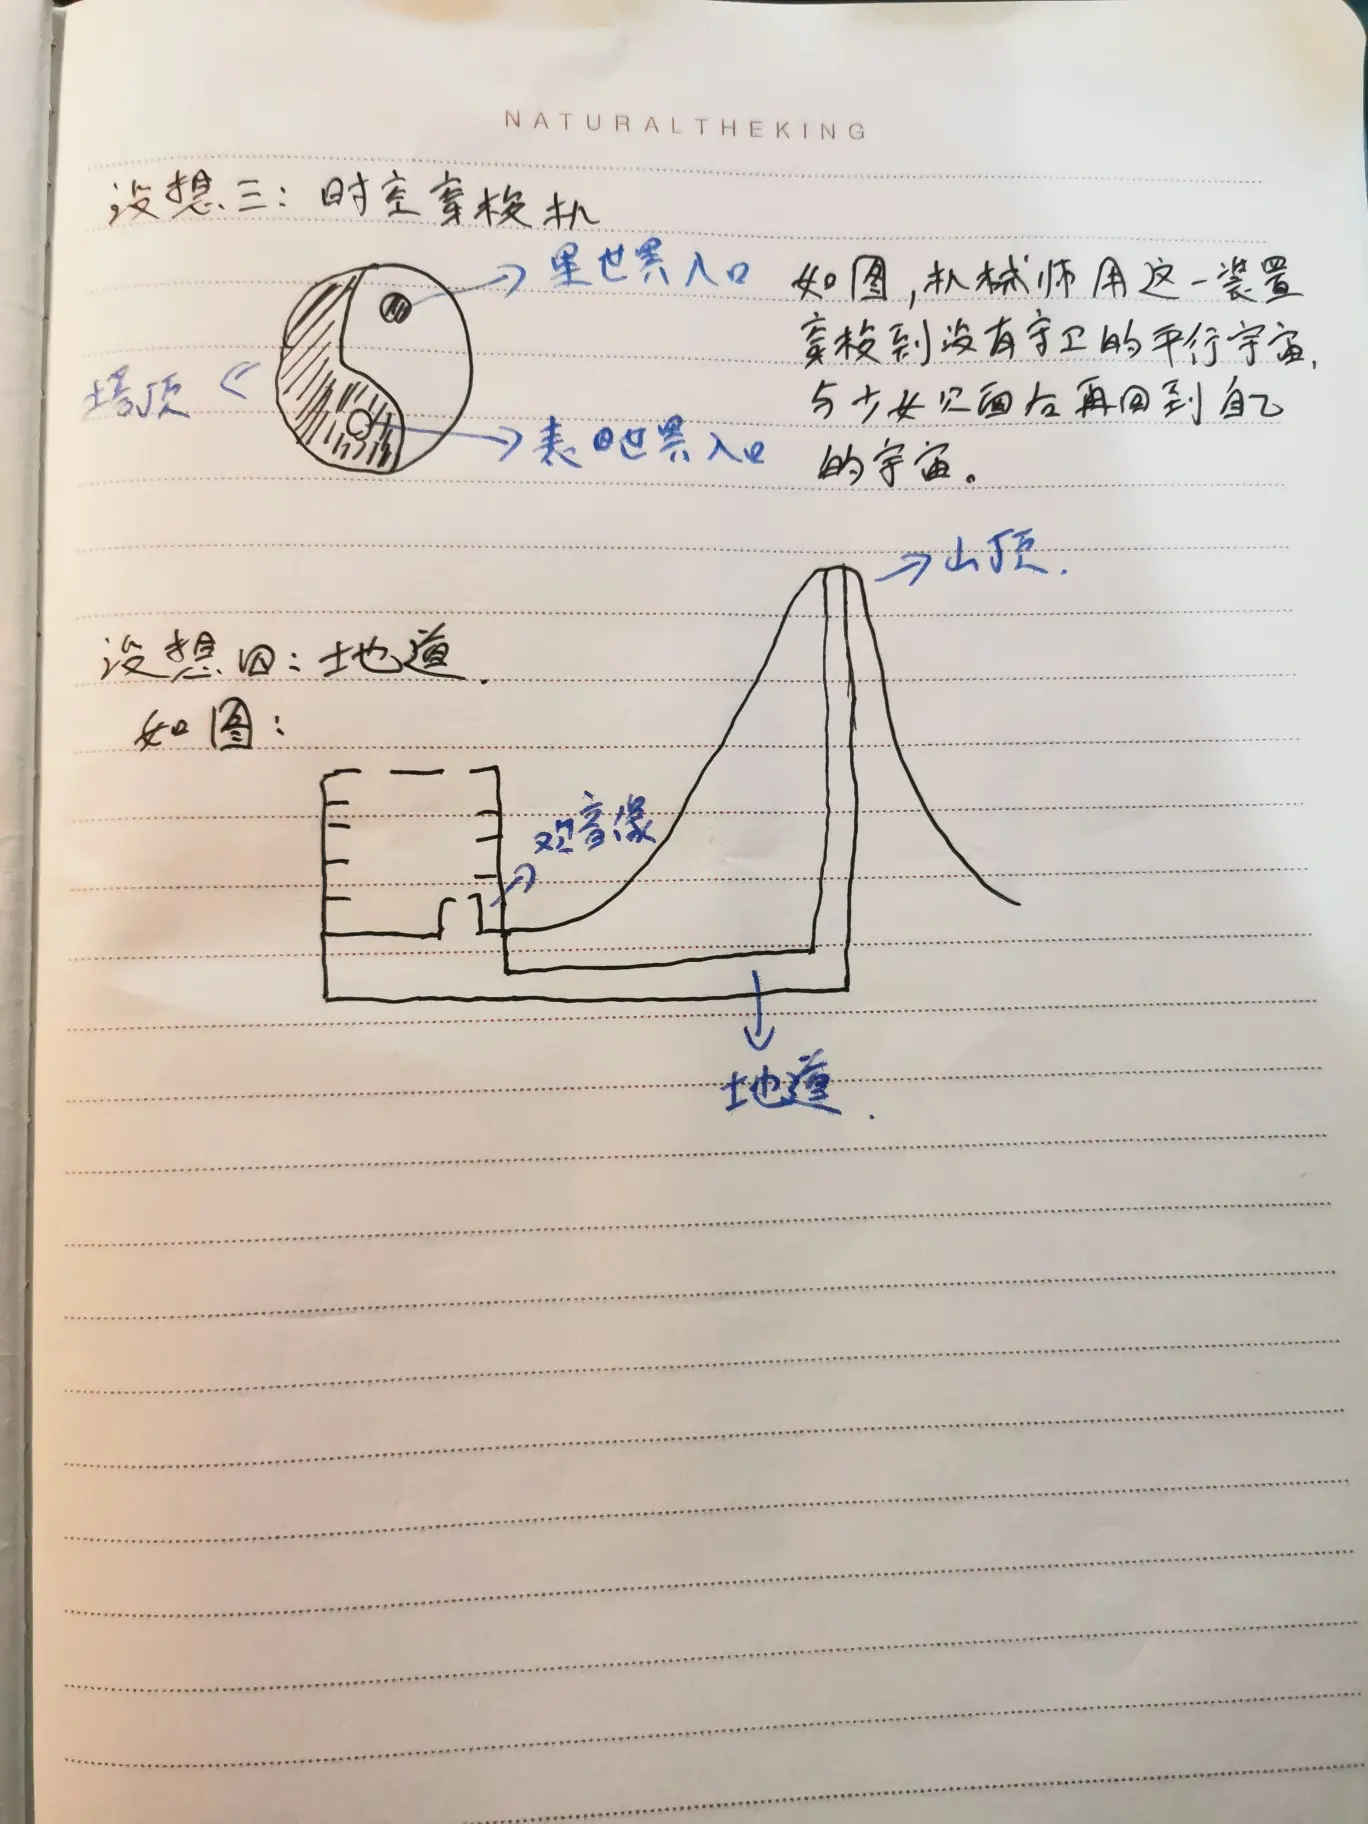 NATURALTHEKING
设想三：时空穿梭机
里世界入口
塔顶
表世界入口
如图，机械师用这一装置
穿梭到没有守卫的平行宇宙，
与少女见面后再回到自己
的宇宙。
山顶.
设想四：地道.
如图：
观音像
地道.